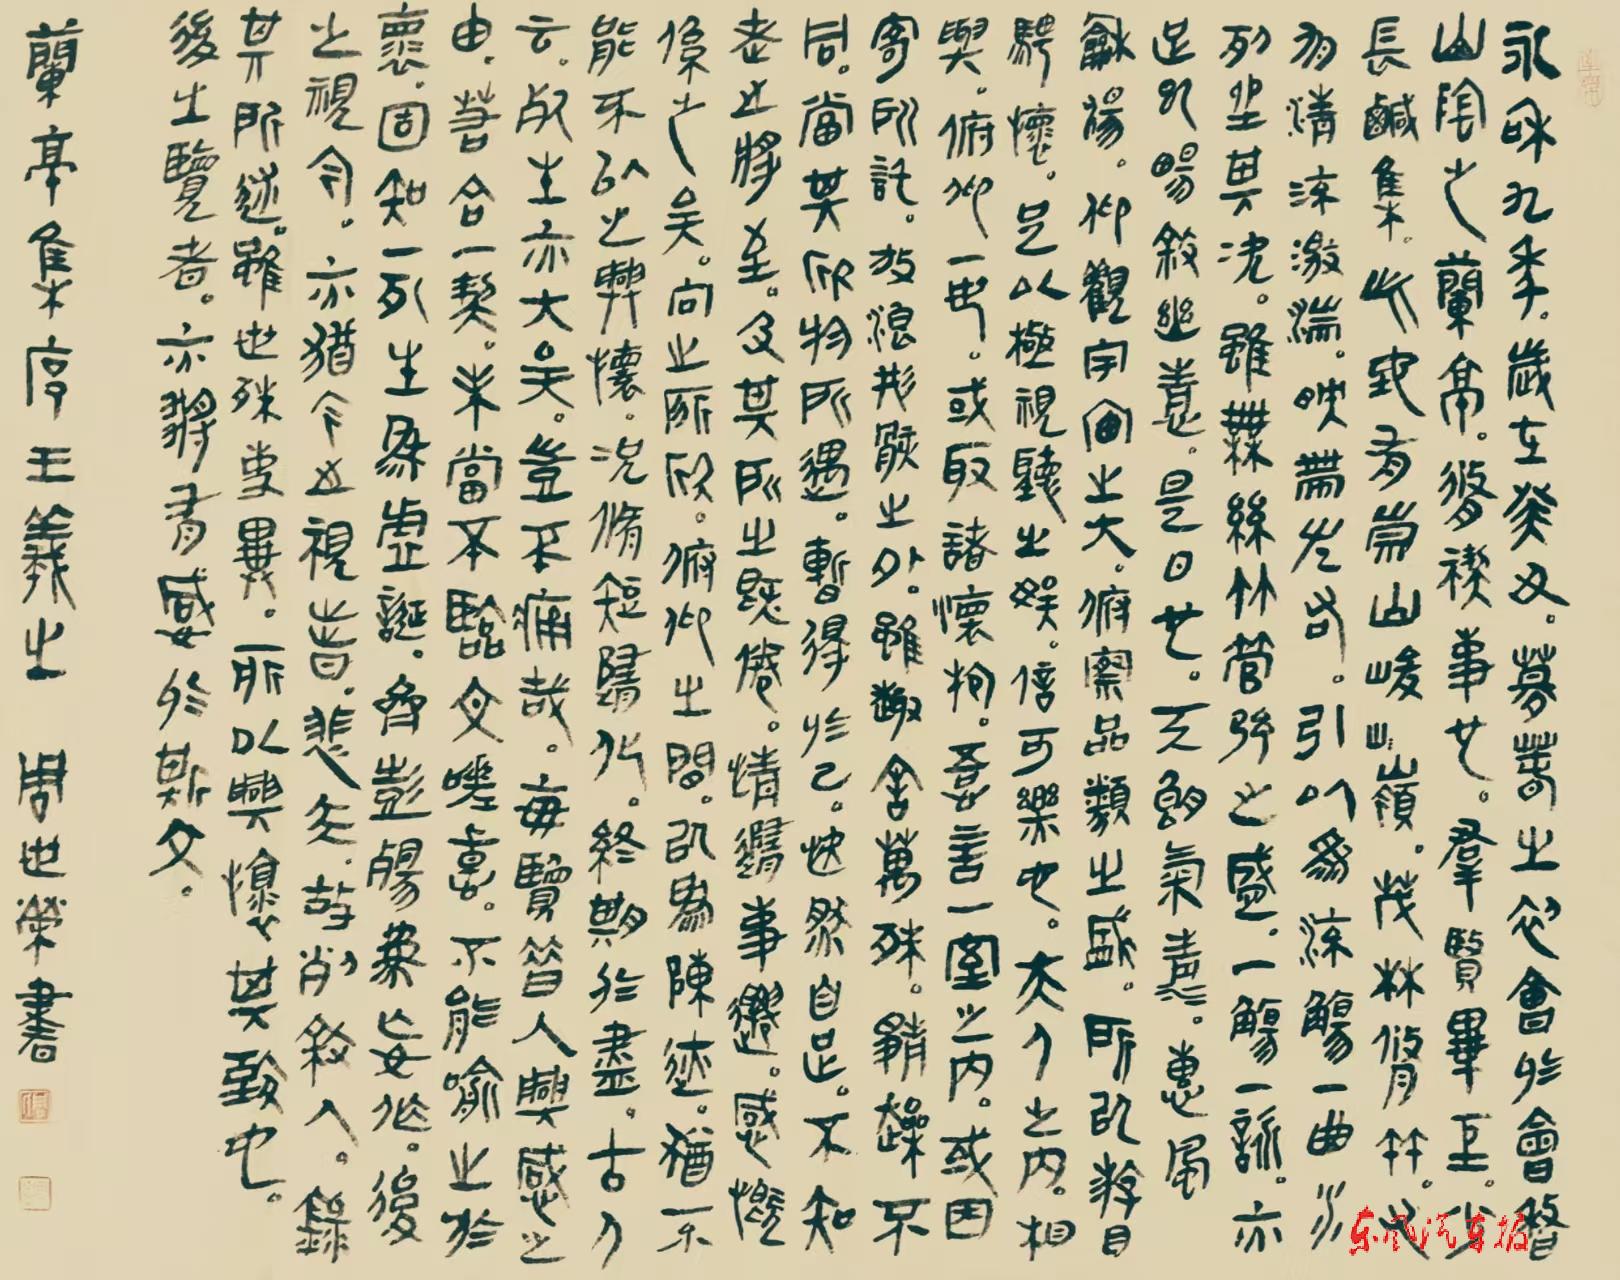 永和九年。歲在癸丑。暮春之初會於會稽
山陰之蘭亭。脩禊事也。群賢畢至。少
長鹹集。此地有崇山峻嶺。茂林脩竹。又
有清流激湍。映帶左右。引以為流觴曲水
列坐其次。雖無絲竹管弦之盛。一觴一詠。亦
足以暢敘幽意。是日也。天朗氣清。惠風
龢暢。仰觀宇宙之大。俯察品類之盛。所以游目
騁懷。足以極視聽之娛。信可樂也。夫人之內。相
與。俯仰一世。或取諸懷抱。晤言一室之內。或因
寄所託。放浪形骸之外。雖趣舍萬殊。靜躁不
同。當其欣物所遇。暫得於己。快然自足。不知
老之將至。及其所之既倦。情隨事遷。感慨
係之矣。向之所欣。俯仰之間。以為陳迹。猶不
能不以之興懷。況脩短隨化。終期於盡。古人
云。死生亦大矣。豈不痛哉。每覽昔人興感之
由。若合一契。未當不臨文嗟悼。不能喻之於
懷。固知一死生為虛誕。齊彭殤為妄作。後
之視今。亦猶今之視昔。悲夫。故列敘人。錄
其所述。雖世殊事異。所以興懷其致也。
後之覽者。亦將有感於斯文。
蘭亭集序王羲之 周世榮書
东风汽车报